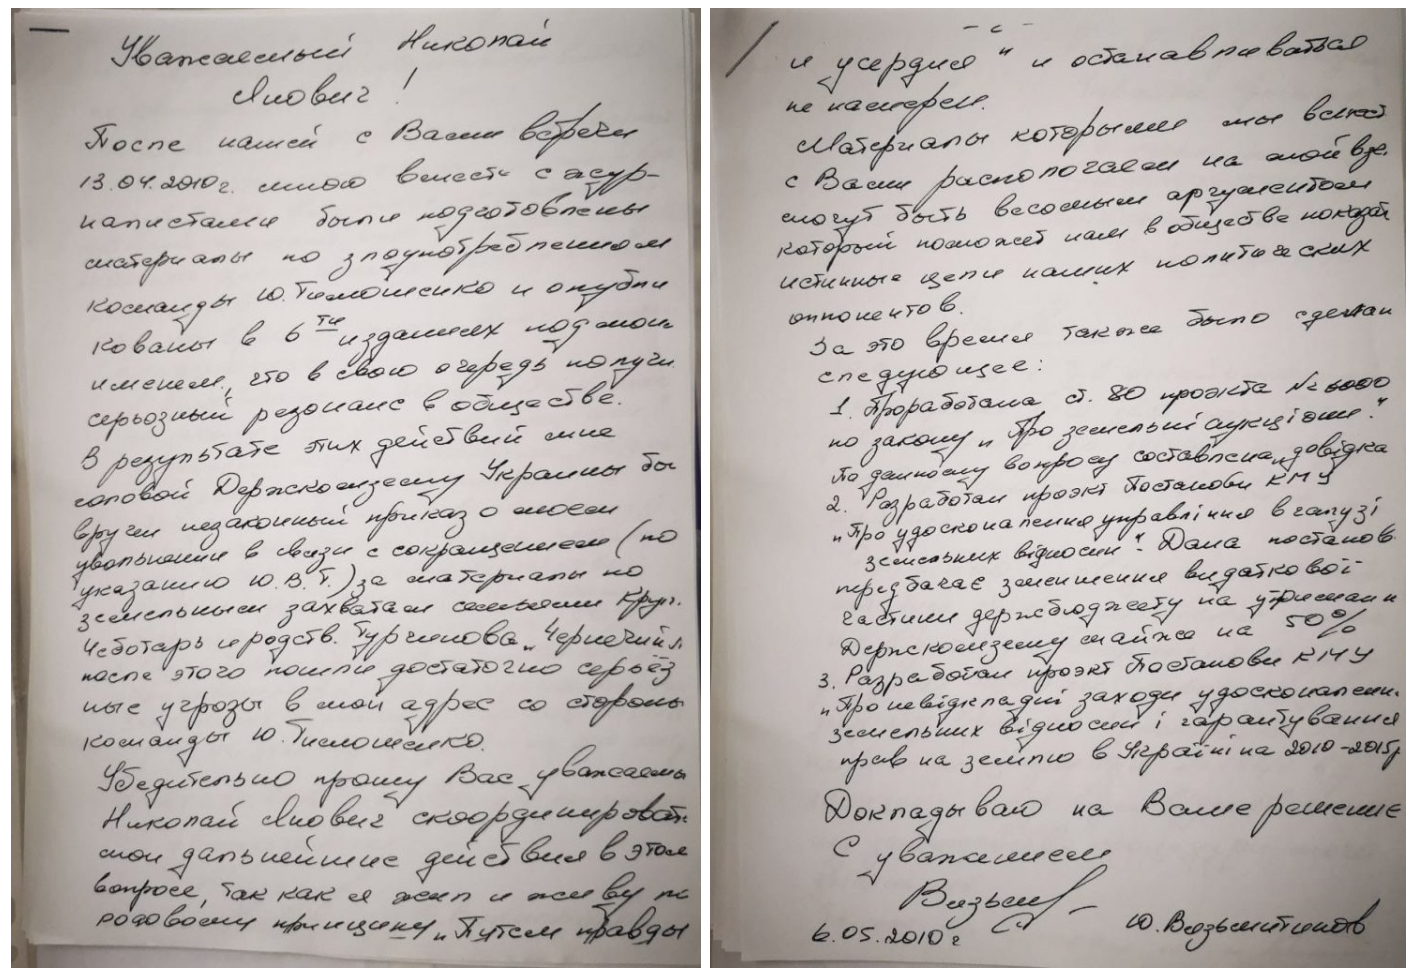 Уважаемый Николай
Янович!
После нашей с Вами встречи
13.04.2010г. мною вместе с жур-
налистами были подготовлены
материалы по злоупотреблениям
команды Ю. Тимошенко и опубли
кованы в 6ти изданиях под моим
именем, что в свою очередь получи
серьозный резонанс в обществе.
В результате этих действий мне
головой Держкомзему Украины бы
вручен незаконный приказ о моем
увольнении в связи с сокращением (по
указанию Ю.В.Т.) за материалы по
земельным захватам семьями
Чеботарь и родств. Турчинова „Чернечий
после этого пошли достаточно серьёз
ные угрозы в мой адрес со стороны
команды Ю. Тимошенко.
Убедительно прошу Вас, уважаемы
Николай Янович скоординировать
мои дальнейшие действия в этом
вопросе, так как я жил и живу по
родовому принципу „Путем правды
и усердия" и останавливаться
не намерен.
Материалы которыми мы вместе
с Вами распологаем на мой взг.
смогут быть весомым аргументом
который поможет нам в обществе показат
истинные цели наших политических
оппонентов.
За это время также было сделан
следующее:
1. Проработана ст. 80 проэкта № 6000
по закону „Про земельні аукціони".
По данному вопросу составлена „довідка
2. Разработан проэкт Постанови КМУ
„Про удосконалення управління в галузі
земельних відносин". Дана постанов.
передбачає зменшення видаткової
частини держбюджету на утриман
Держкомзему майже на 50%
3. Разработан проэкт Постанови КМУ
„Про невідкладні заходи удосконален.
земельних відносин і гарантування
прав на землю в Україні на 2010-2015р
Докладываю на Ваше решение
С уважением
6.05.2010г Ю. Возьмитинов